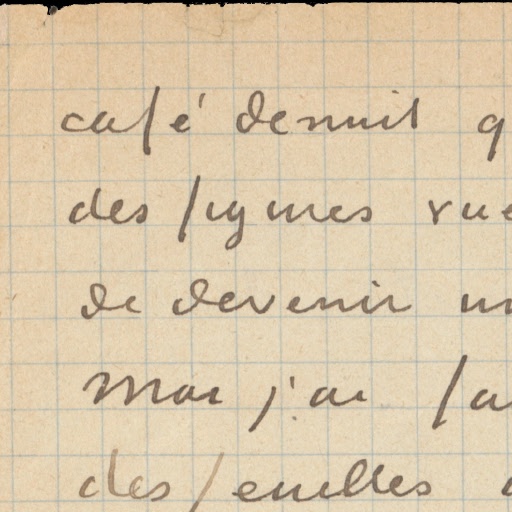 café de nuit q
des figures vue
de devenir un
Moi j'ai fa
des feuilles